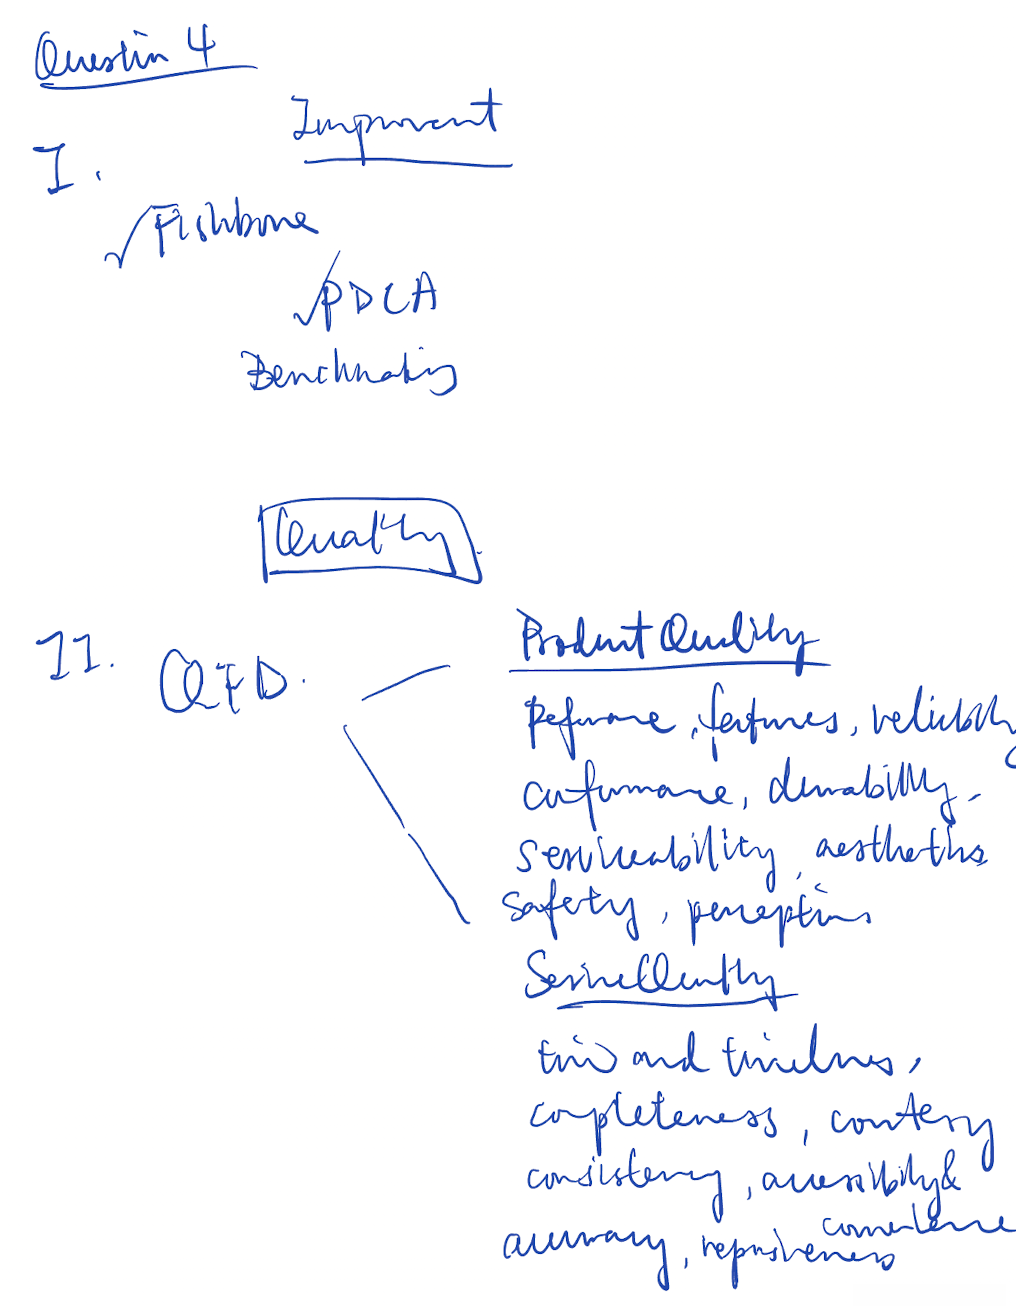 Question 4
Improvement
I.
✓Fishbone
✓PDCA
Benchmarking
Quality
II. QFD.
Product Quality
Performance, features, reliability
conformance, durability,
serviceability, aesthetics
safety, perceptions
Service Quality
time and timeliness,
completeness, courtesy
consistency, accessibility &
convenience
accuracy, responsiveness